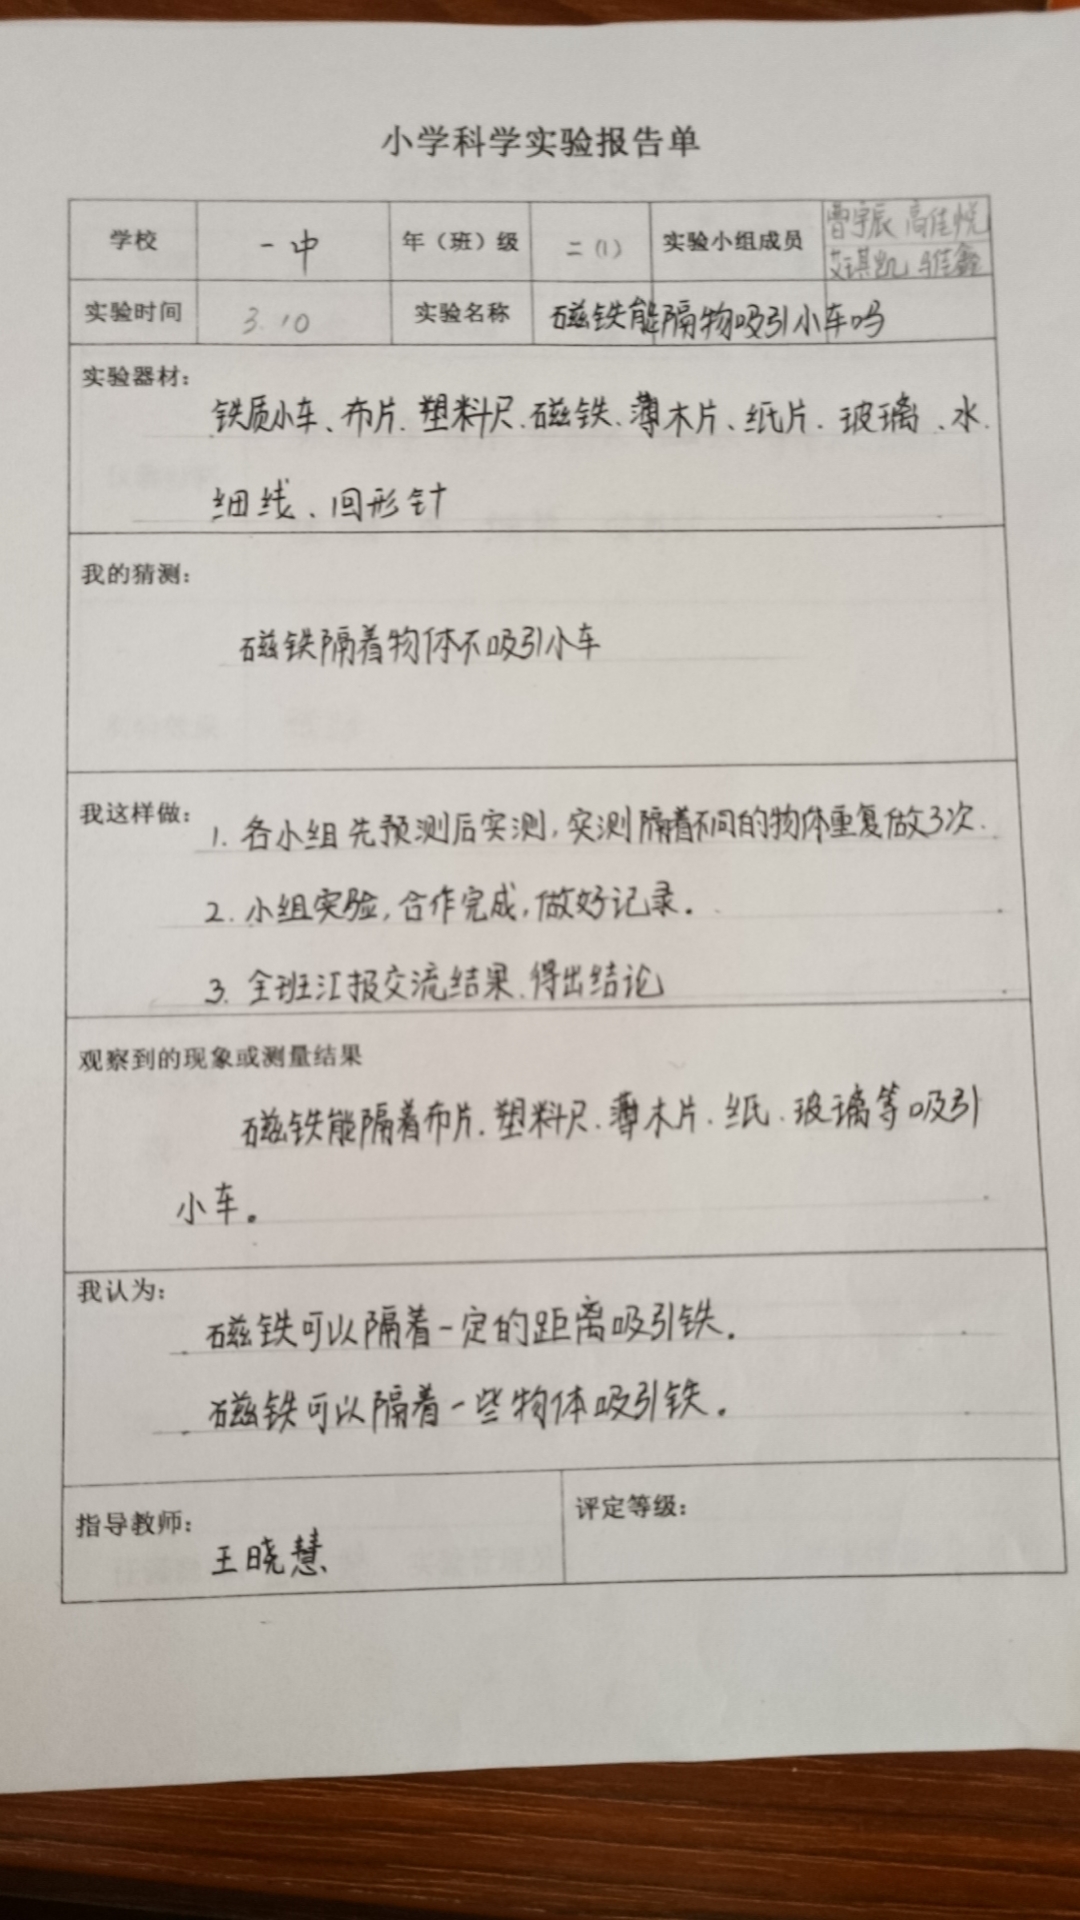 小学科学实验报告单
学校 一中 年（班）级 二（1） 实验小组成员 曹宇辰 高佳悦
艾琪凯 佳鑫
实验时间 3.10 实验名称 磁铁能隔物吸引小车吗
实验器材：
铁质小车、布片、塑料尺、磁铁、薄木片、纸片、玻璃、水、
细线、回形针
我的猜测：
磁铁隔着物体不吸引小车
我这样做：
1. 各小组先预测后实测，实测隔着不同的物体重复做3次.
2. 小组实验，合作完成，做好记录。
3. 全班汇报交流结果、得出结论
观察到的现象或测量结果
磁铁能隔着布片、塑料尺、薄木片、纸、玻璃等吸引
小车。
我认为：
磁铁可以隔着一定的距离吸引铁。
磁铁可以隔着一些物体吸引铁。
指导教师： 评定等级：
王晓慧